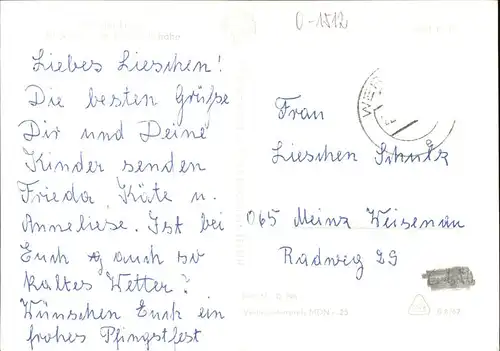 0-1512
Liebes Lieschen!
Die besten Grüße
Dir und Deine
Kinder senden
Frieda, Käte u.
Anneliese. Ist bei
Euch auch so
kaltes Wetter?
Wünschen Euch ein
frohes Pfingstfest
Frau
Lieschen Schulz
065 Meinz Weisenau
Radweg 29
MDN -,25